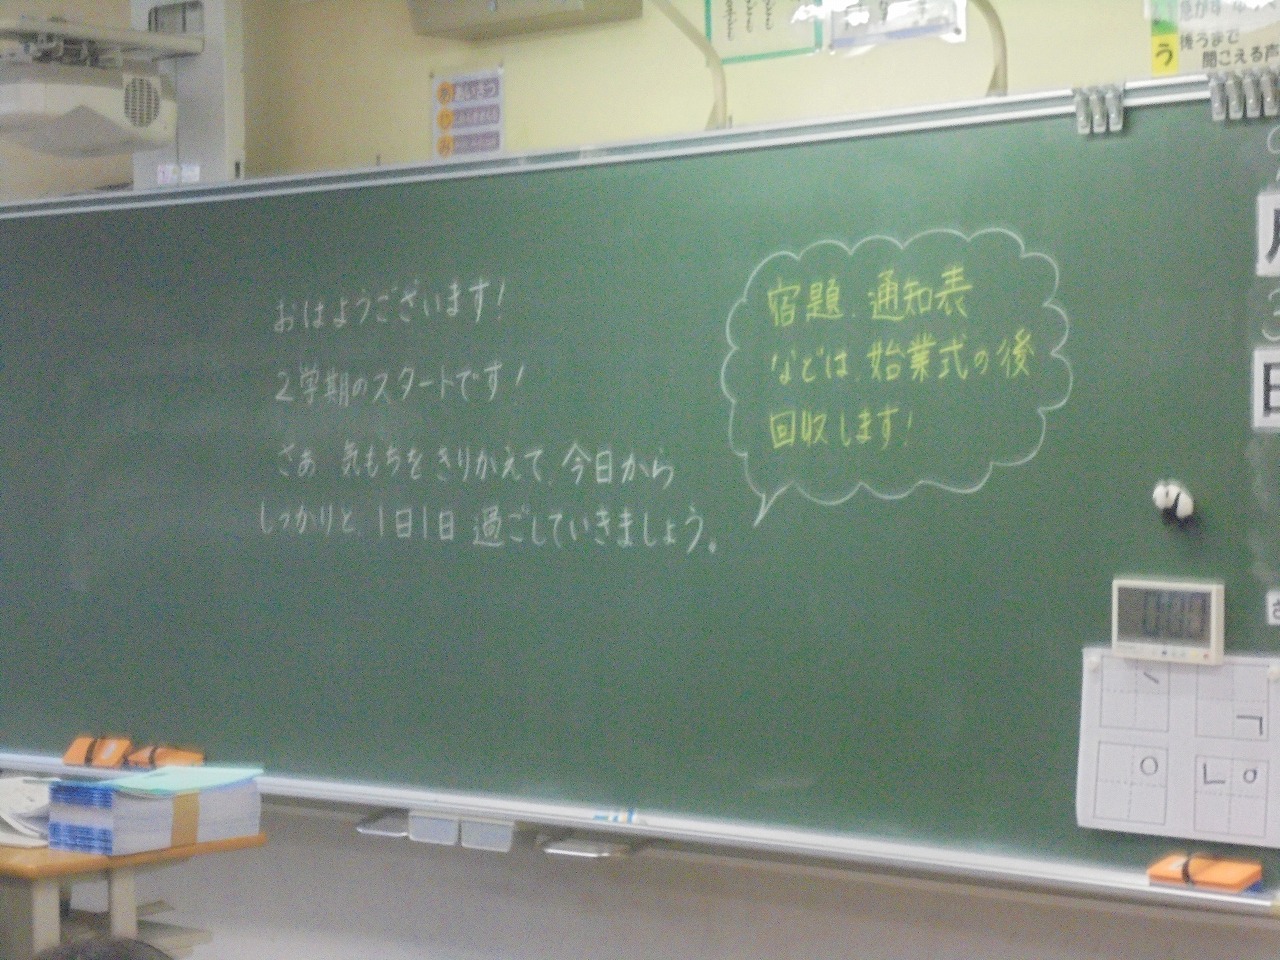 おはようございます!
2学期のスタートです!
さあ 気もちをきりかえて、今日から
しっかりと、1日1日 過ごしていきましょう。
宿題、通知表
などは、始業式の後
回収します!
う 後うまで
聞こえる声
月
日
0:00